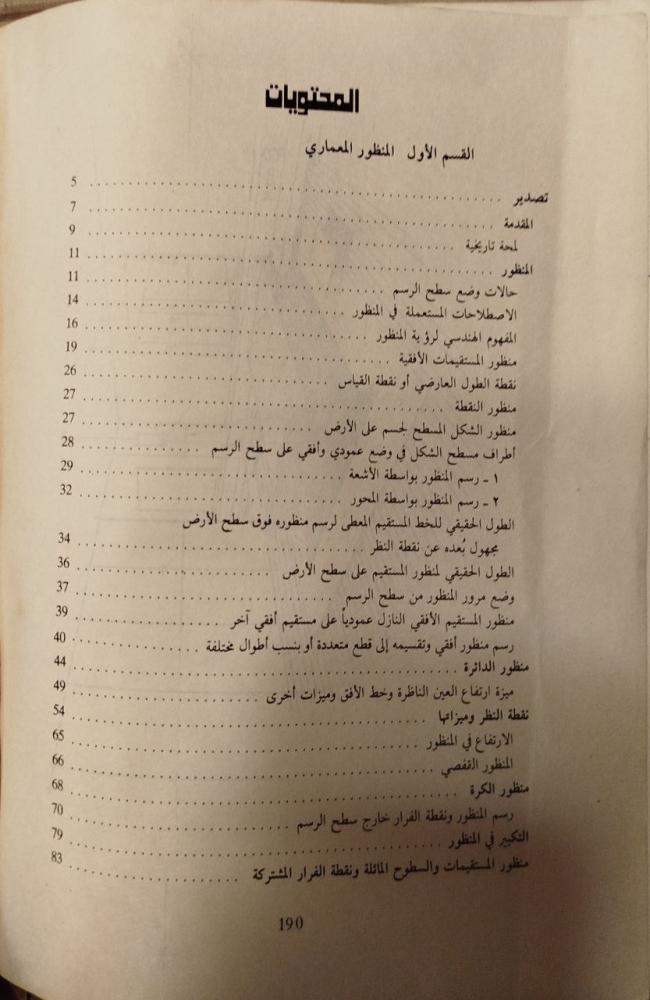 المحتويات
القسم الأول المنظور المعماري
تصدير ........ 5
المقدمة ........ 7
لمحة تاريخية ........ 9
المنظور ........ 11
حالات وضع سطح الرسم ........ 11
الاصطلاحات المستعملة في المنظور ........ 14
المفهوم الهندسي لرؤية المنظور ........ 16
منظور المستقيمات الأفقية ........ 19
نقطة الطول العارضي أو نقطة القياس ........ 26
منظور النقطة ........ 27
منظور الشكل المسطح لجسم على الأرض ........ 27
أطراف مسطح الشكل في وضع عمودي وأفقي على سطح الرسم ........ 28
١ ـ رسم المنظور بواسطة الأشعة ........ 29
٢ ـ رسم المنظور بواسطة المحور ........ 32
الطول الحقيقي للخط المستقيم المعطى لرسم منظوره فوق سطح الأرض
مجهول بُعده عن نقطة النظر ........ 34
الطول الحقيقي لمنظور المستقيم على سطح الأرض ........ 36
وضع مرور المنظور من سطح الرسم ........ 37
منظور المستقيم الأفقي النازل عمودياً على مستقيم أفقي آخر ........ 39
رسم منظور أفقي وتقسيمه إلى قطع متعددة أو بنسب أطوال مختلفة ........ 40
منظور الدائرة ........ 44
ميزة ارتفاع العين الناظرة وخط الأفق وميزات أخرى ........ 49
نقطة النظر وميزاتها ........ 54
الارتفاع في المنظور ........ 65
المنظور القفصي ........ 66
منظور الكرة ........ 68
رسم المنظور ونقطة الفرار خارج سطح الرسم ........ 70
التكبير في المنظور ........ 79
منظور المستقيمات والسطوح المائلة ونقطة الفرار المشتركة ........ 83
190